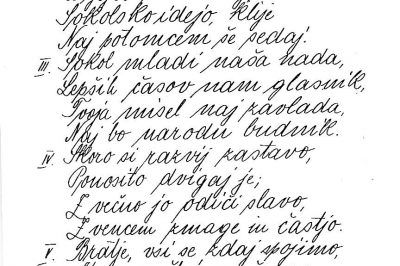 Sokolsko idejo, klije
Naj potomcem še sedaj!
III. Sokol mladi naša nada,
Lepših časov nam glasnik,
Tvoja misel naj zavlada,
Naj bo narodu budnik.
IV. Skoro si razvij zastavo,
Ponosito dvigaj je;
Z večno jo odiči slavo,
Z vencem zmage in častjo.
V. Bratje, vsi se zdaj spojimo,